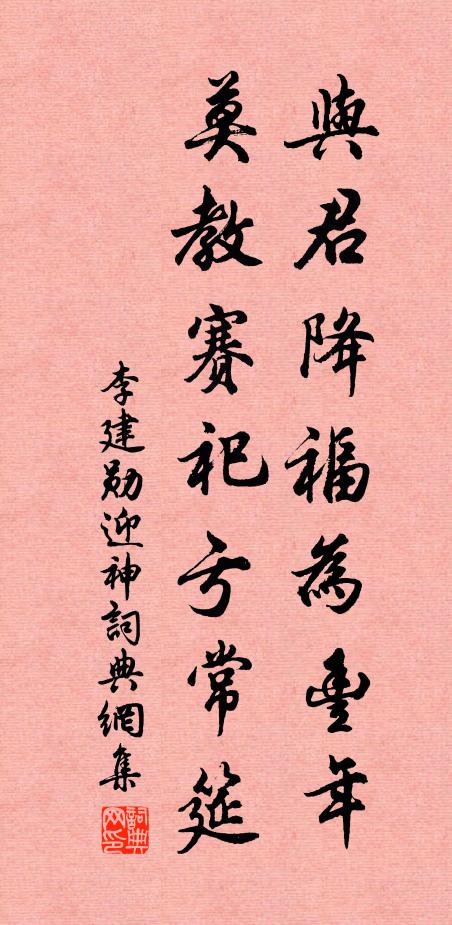 與君降福為豐年
莫教賽祀亏常筵
李建勋迎神詞典網集
詞典网印